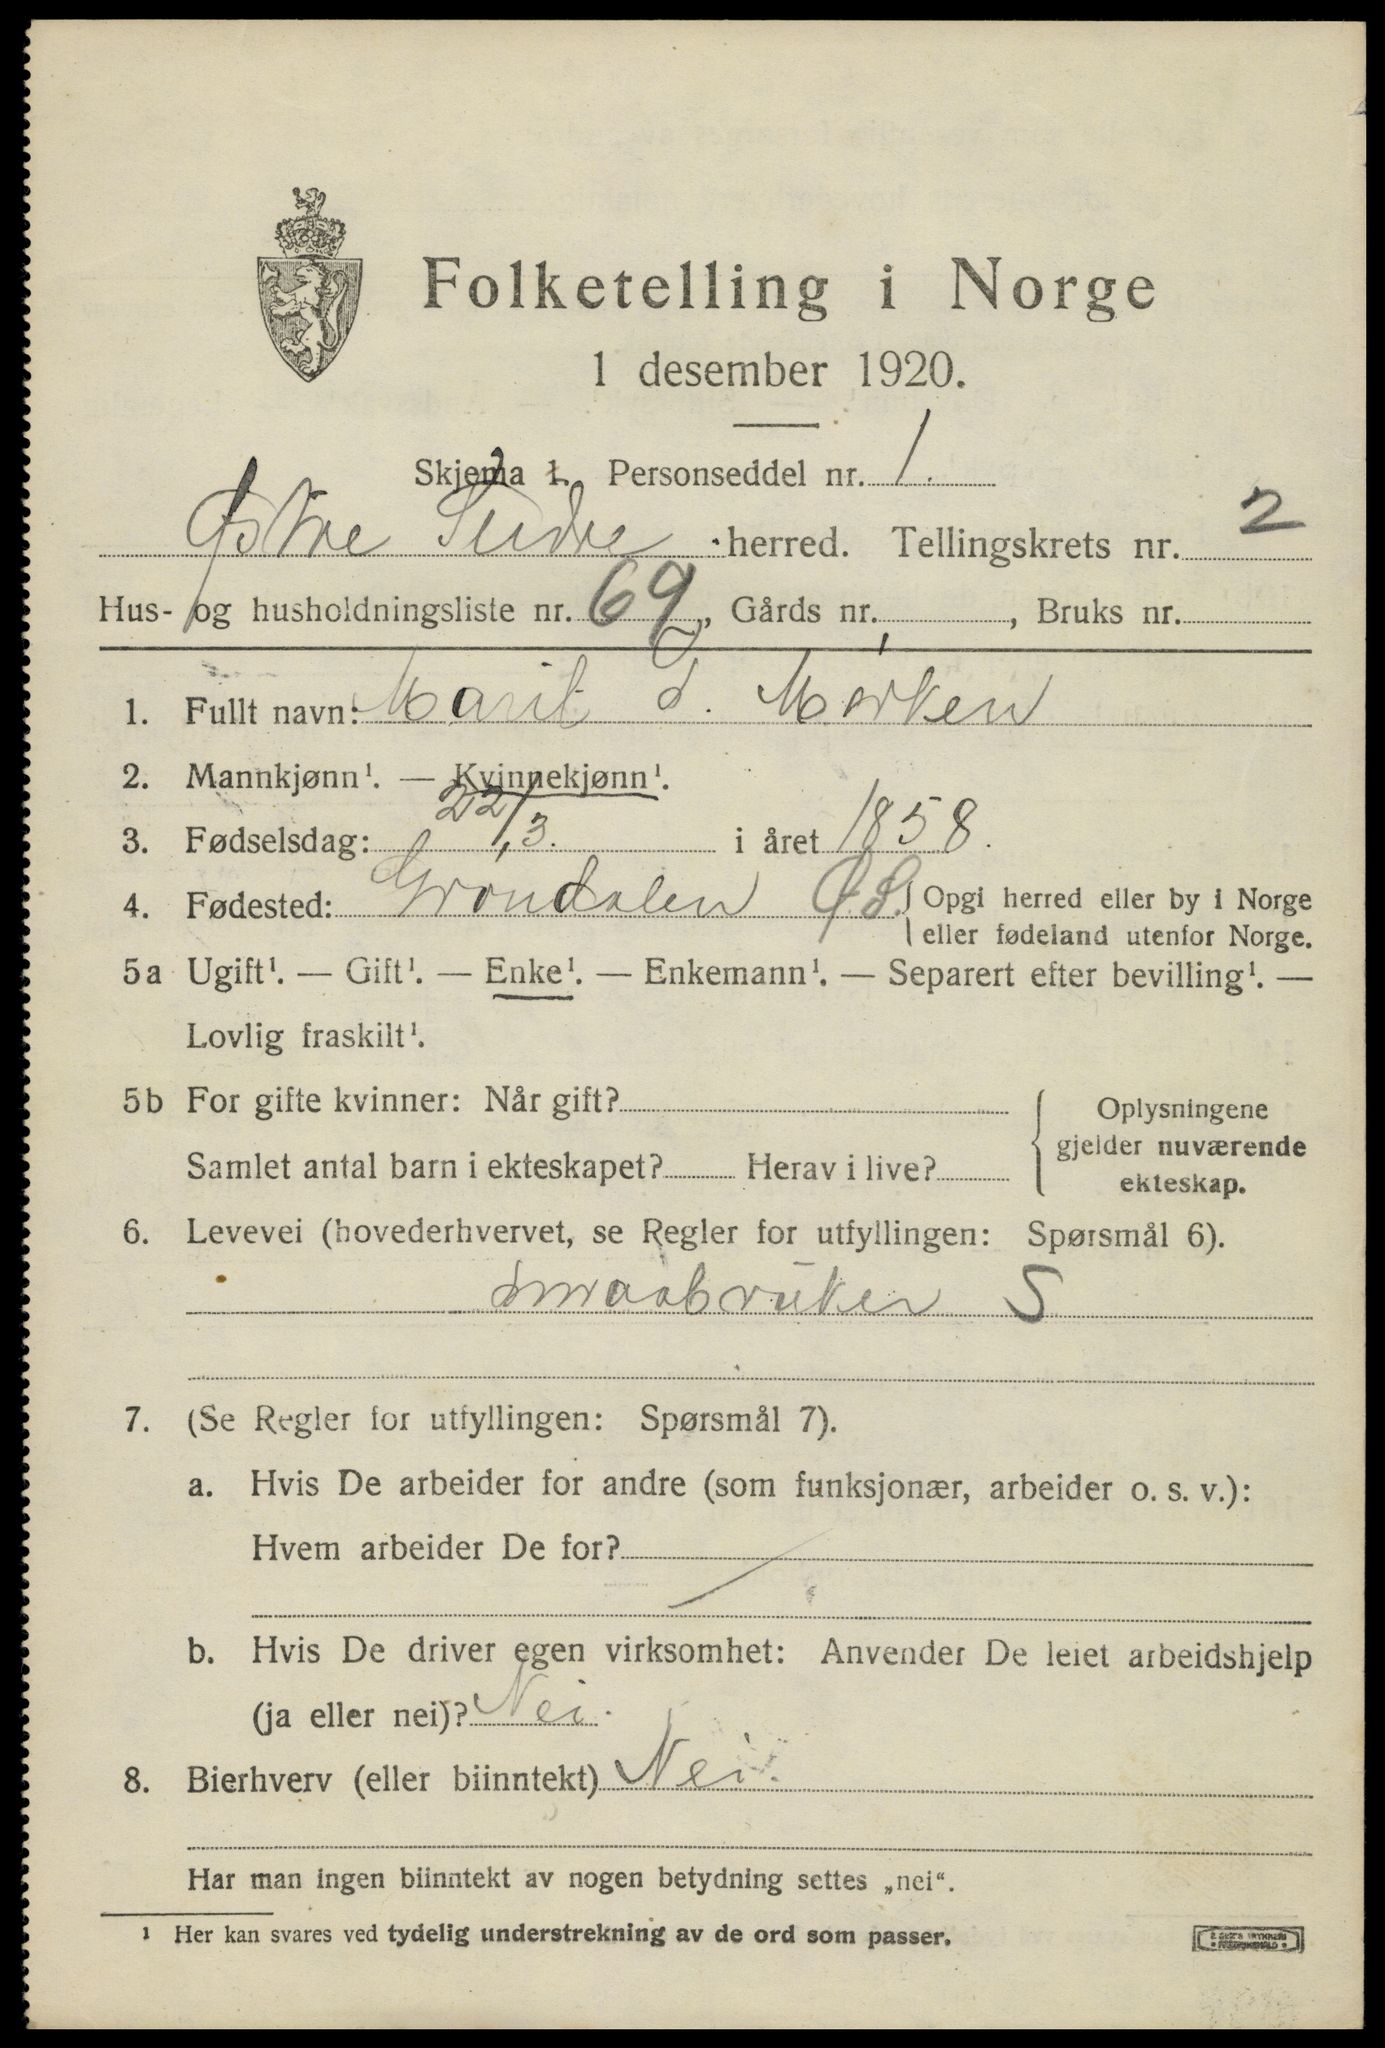 Folketelling i Norge
1 desember 1920.
Skjema 1. Personseddel nr. 1.
Østre Slidre herred. Tellingskrets nr. 2
Hus- og husholdningsliste nr. 69, Gårds nr. , Bruks nr.
1. Fullt navn: Marit S. Mørken
2. Mannkjønn¹. — Kvinnekjønn¹.
3. Fødselsdag: 22/3. i året 1858.
4. Fødested: Grøndalen Ø.S. Opgi herred eller by i Norge
eller fødeland utenfor Norge.
5a Ugift¹. — Gift¹. — Enke¹. — Enkemann¹. — Separert efter bevilling¹. —
Lovlig fraskilt¹.
5b For gifte kvinner: Når gift?
Samlet antal barn i ekteskapet? Herav i live?
Oplysningene
gjelder nuværende
ekteskap.
6. Levevei (hovederhvervet, se Regler for utfyllingen: Spørsmål 6).
smaabruker S
7. (Se Regler for utfyllingen: Spørsmål 7).
a. Hvis De arbeider for andre (som funksjonær, arbeider o. s. v.):
Hvem arbeider De for?
b. Hvis De driver egen virksomhet: Anvender De leiet arbeidshjelp
(ja eller nei)? Nei.
8. Bierhverv (eller biinntekt) Nei.
Har man ingen biinntekt av nogen betydning settes „nei“.
¹ Her kan svares ved tydelig understrekning av de ord som passer.